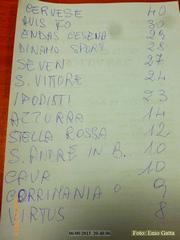 CERVESE 40
AVIS RO 30
ENDAS CESENA 29
DINAMO SPORT 28
SEVEN 27
S. VITTORE 24
IPPODISTI 23
AZZURRA 14
STELLA ROSSA 12
S. ANDRE IN B. 10
CAVA 10
CORRIMANIA 9
VIRTUS 8
06/09/2013 20:40:06
Foto: Enio Gatta